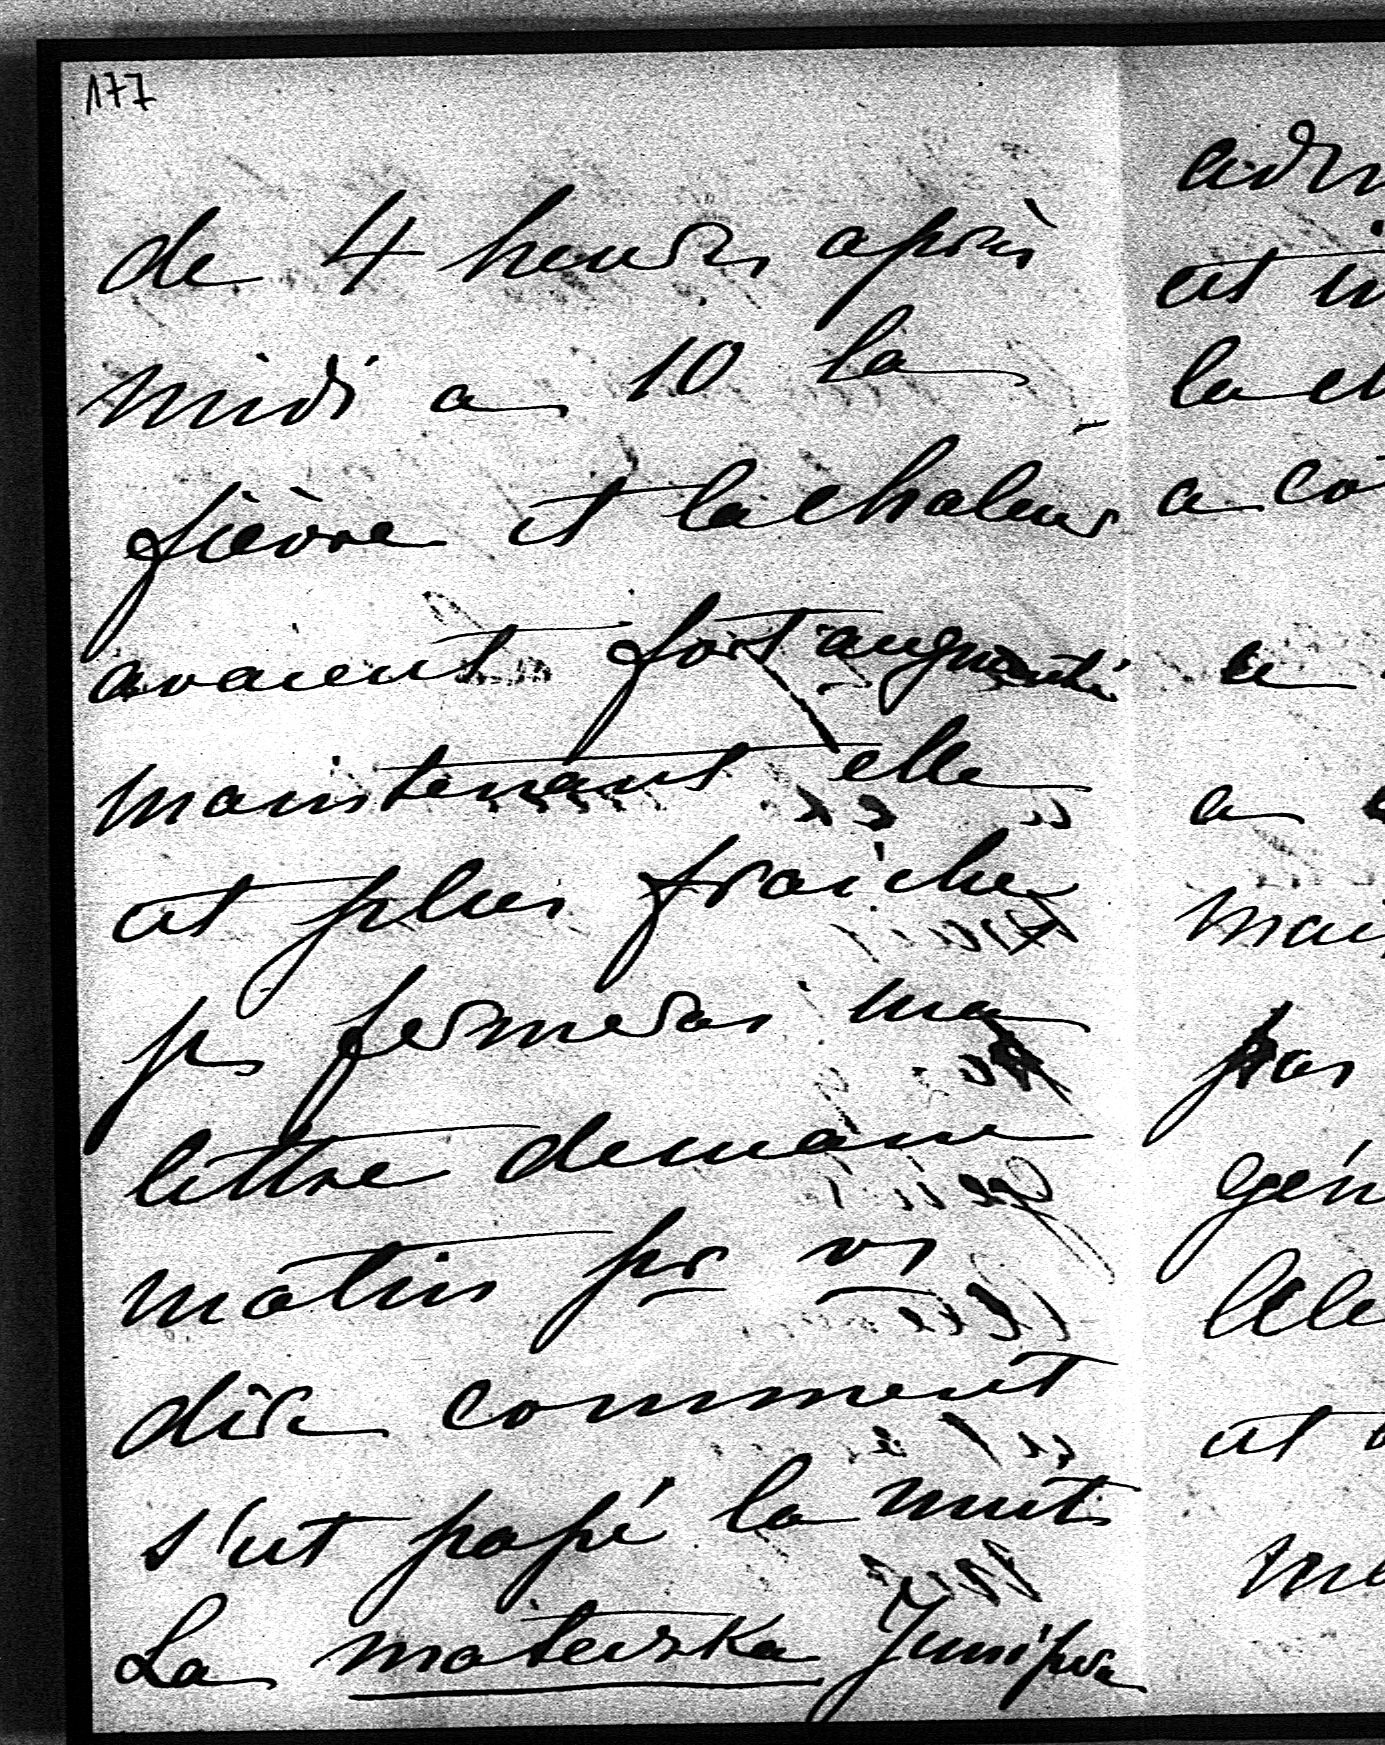 177
de 4 heures après
midi a 10 la
fièvre et la chaleur
avaient fort augmenté
maintenant elle
est plus fraiche
je fermerai ma
lettre demain
matin pr vs
dire comment
s'est passé la nuit
La materska
et
la
a
a
a
pas
et